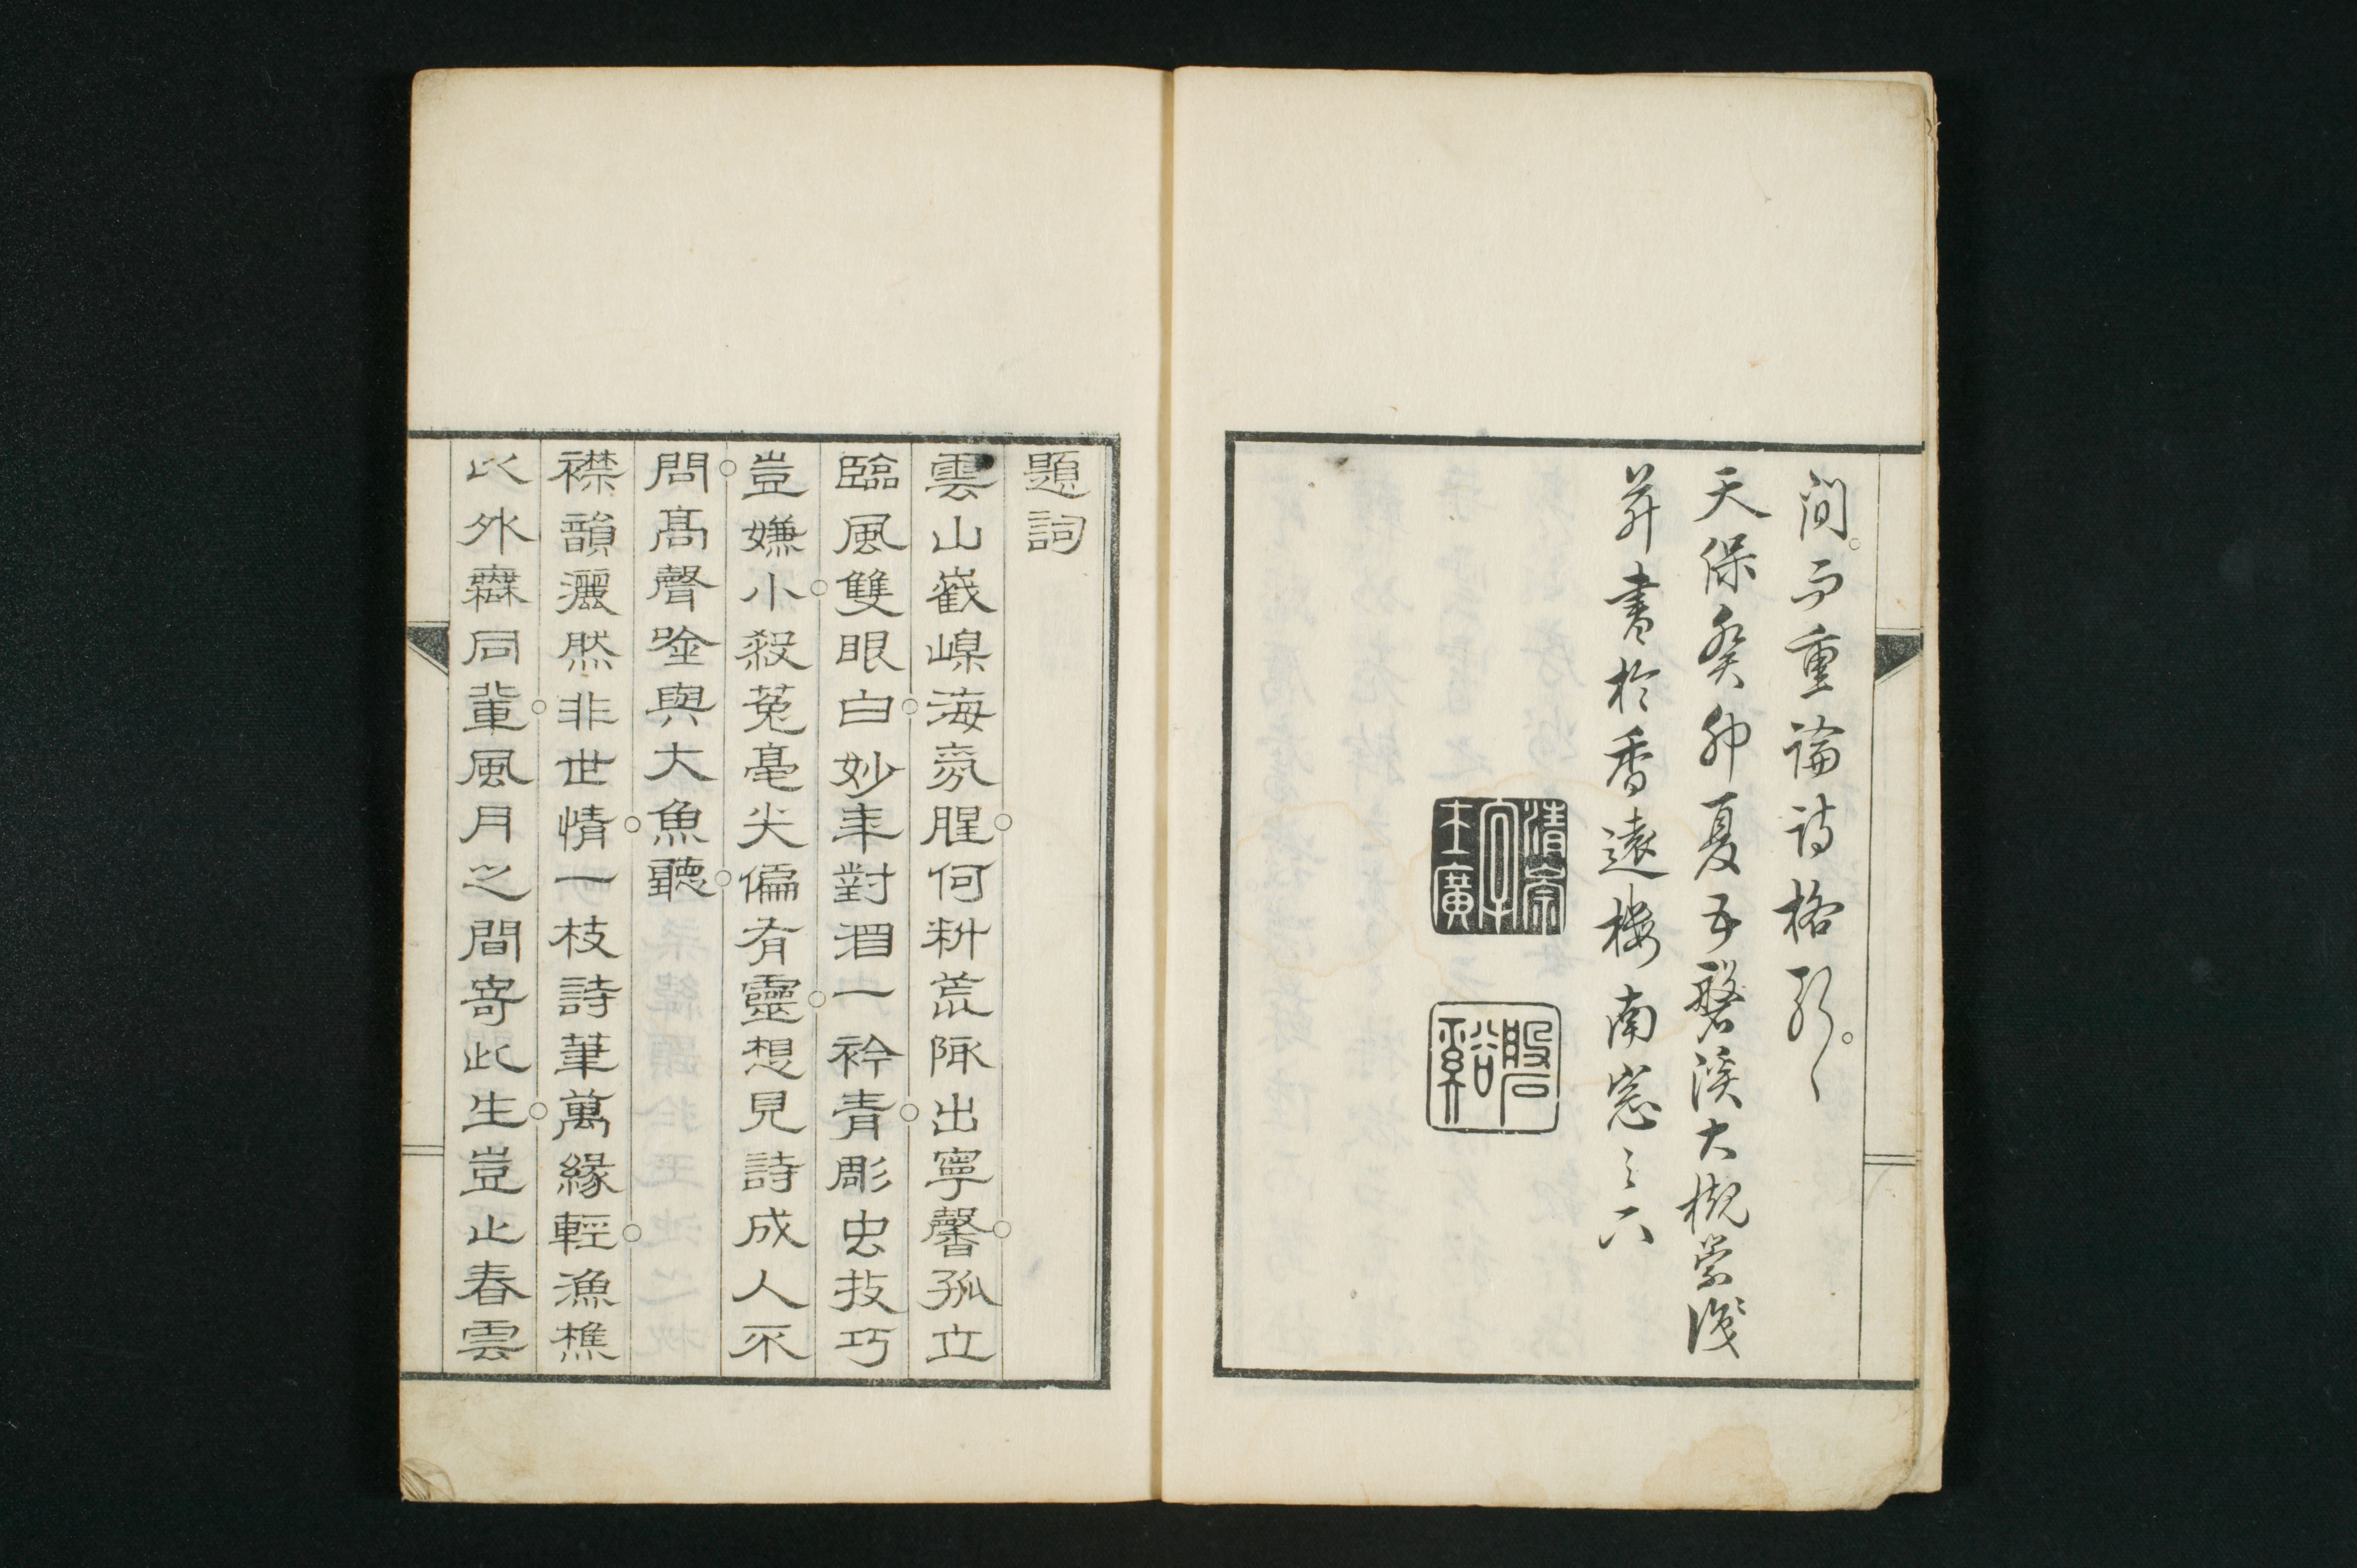 间而重論詩格耶
天保癸卯夏五磐溪大槻崇譔
并書於香遠樓南窓之下
清崇字士廣
磐谿
題詞
雲山巀嵲海氛腥何耕荒陬出寧馨孤立
臨風雙眼白妙年對酒一衿青彫虫技巧
豈嫌小殺菟毫尖偏有靈想見詩成人不
問高聲唫與大魚聽
襟韻灑然非世情一枝詩筆萬緣輕漁樵
以外無同輩風月之間寄此生豈止春雲